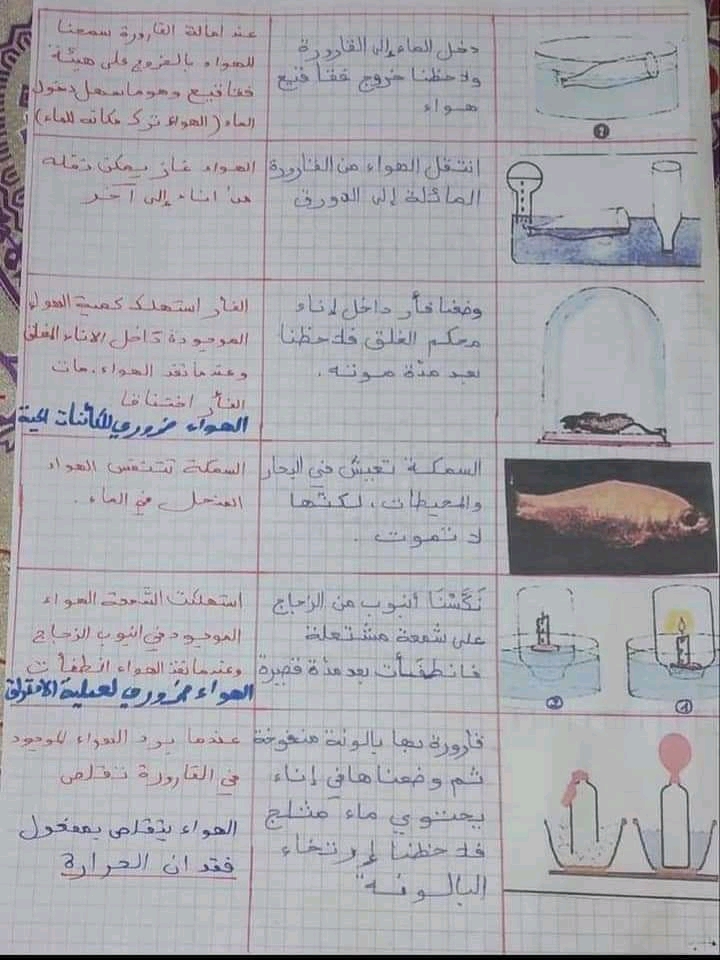 دخل الماء إلى القارورة
ولاحظنا خروج فقاقيع
هواء
عند امالة القارورة سمحنا
للهواء بالخروج على هيئة
فقاقيع وهو ما سهل دخول
الماء (الهواء ترك مكانه للماء)
2
انتقل الهواء من القارورة
المائلة إلى الدورق
الهواء غاز يمكن نقله
من اناء إلى آخر
وضعنا فأر داخل إناء
محكم الغلق فلاحظنا
بعد مدة موته.
الفأر استهلك كمية الهواء
الموجودة داخل الاناء المغلق
وعندما نفذ الهواء. مات
الفأر اختناقا
الهواء ضروري للكائنات الحية
السمكة تعيش في البحار
والمحيطات، لكنها
لا تموت.
السمكة تتنفس الهواء
المنحل في الماء.
نَكَّسْنَا أنبوب من الزجاج
على شمعة مشتعلة
فانطفأت بعد مدة قصيرة
استهلكت الشمعة الهواء
الموجود في انبوب الزجاج
وعندما نفذ الهواء انطفأت
الهواء ضروري لعملية الاحتراق
2
1
قارورة بها بالونة منفوخة
ثم وضعناها في إناء
يحتوي ماء مثلج
فلاحظنا إرتخاء
البالونة"
عندما برد الهواء الموجود
في القارورة تقلص
الهواء يتقلص بمفعول
فقدان الحرارة